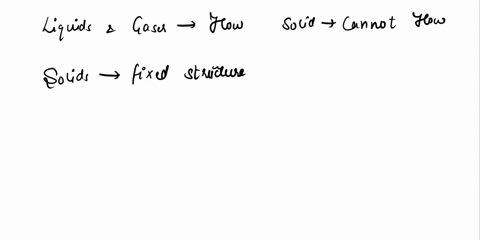 Liquids & Gases → Flow Solid → Cannot Flow
Solids → fixed structure